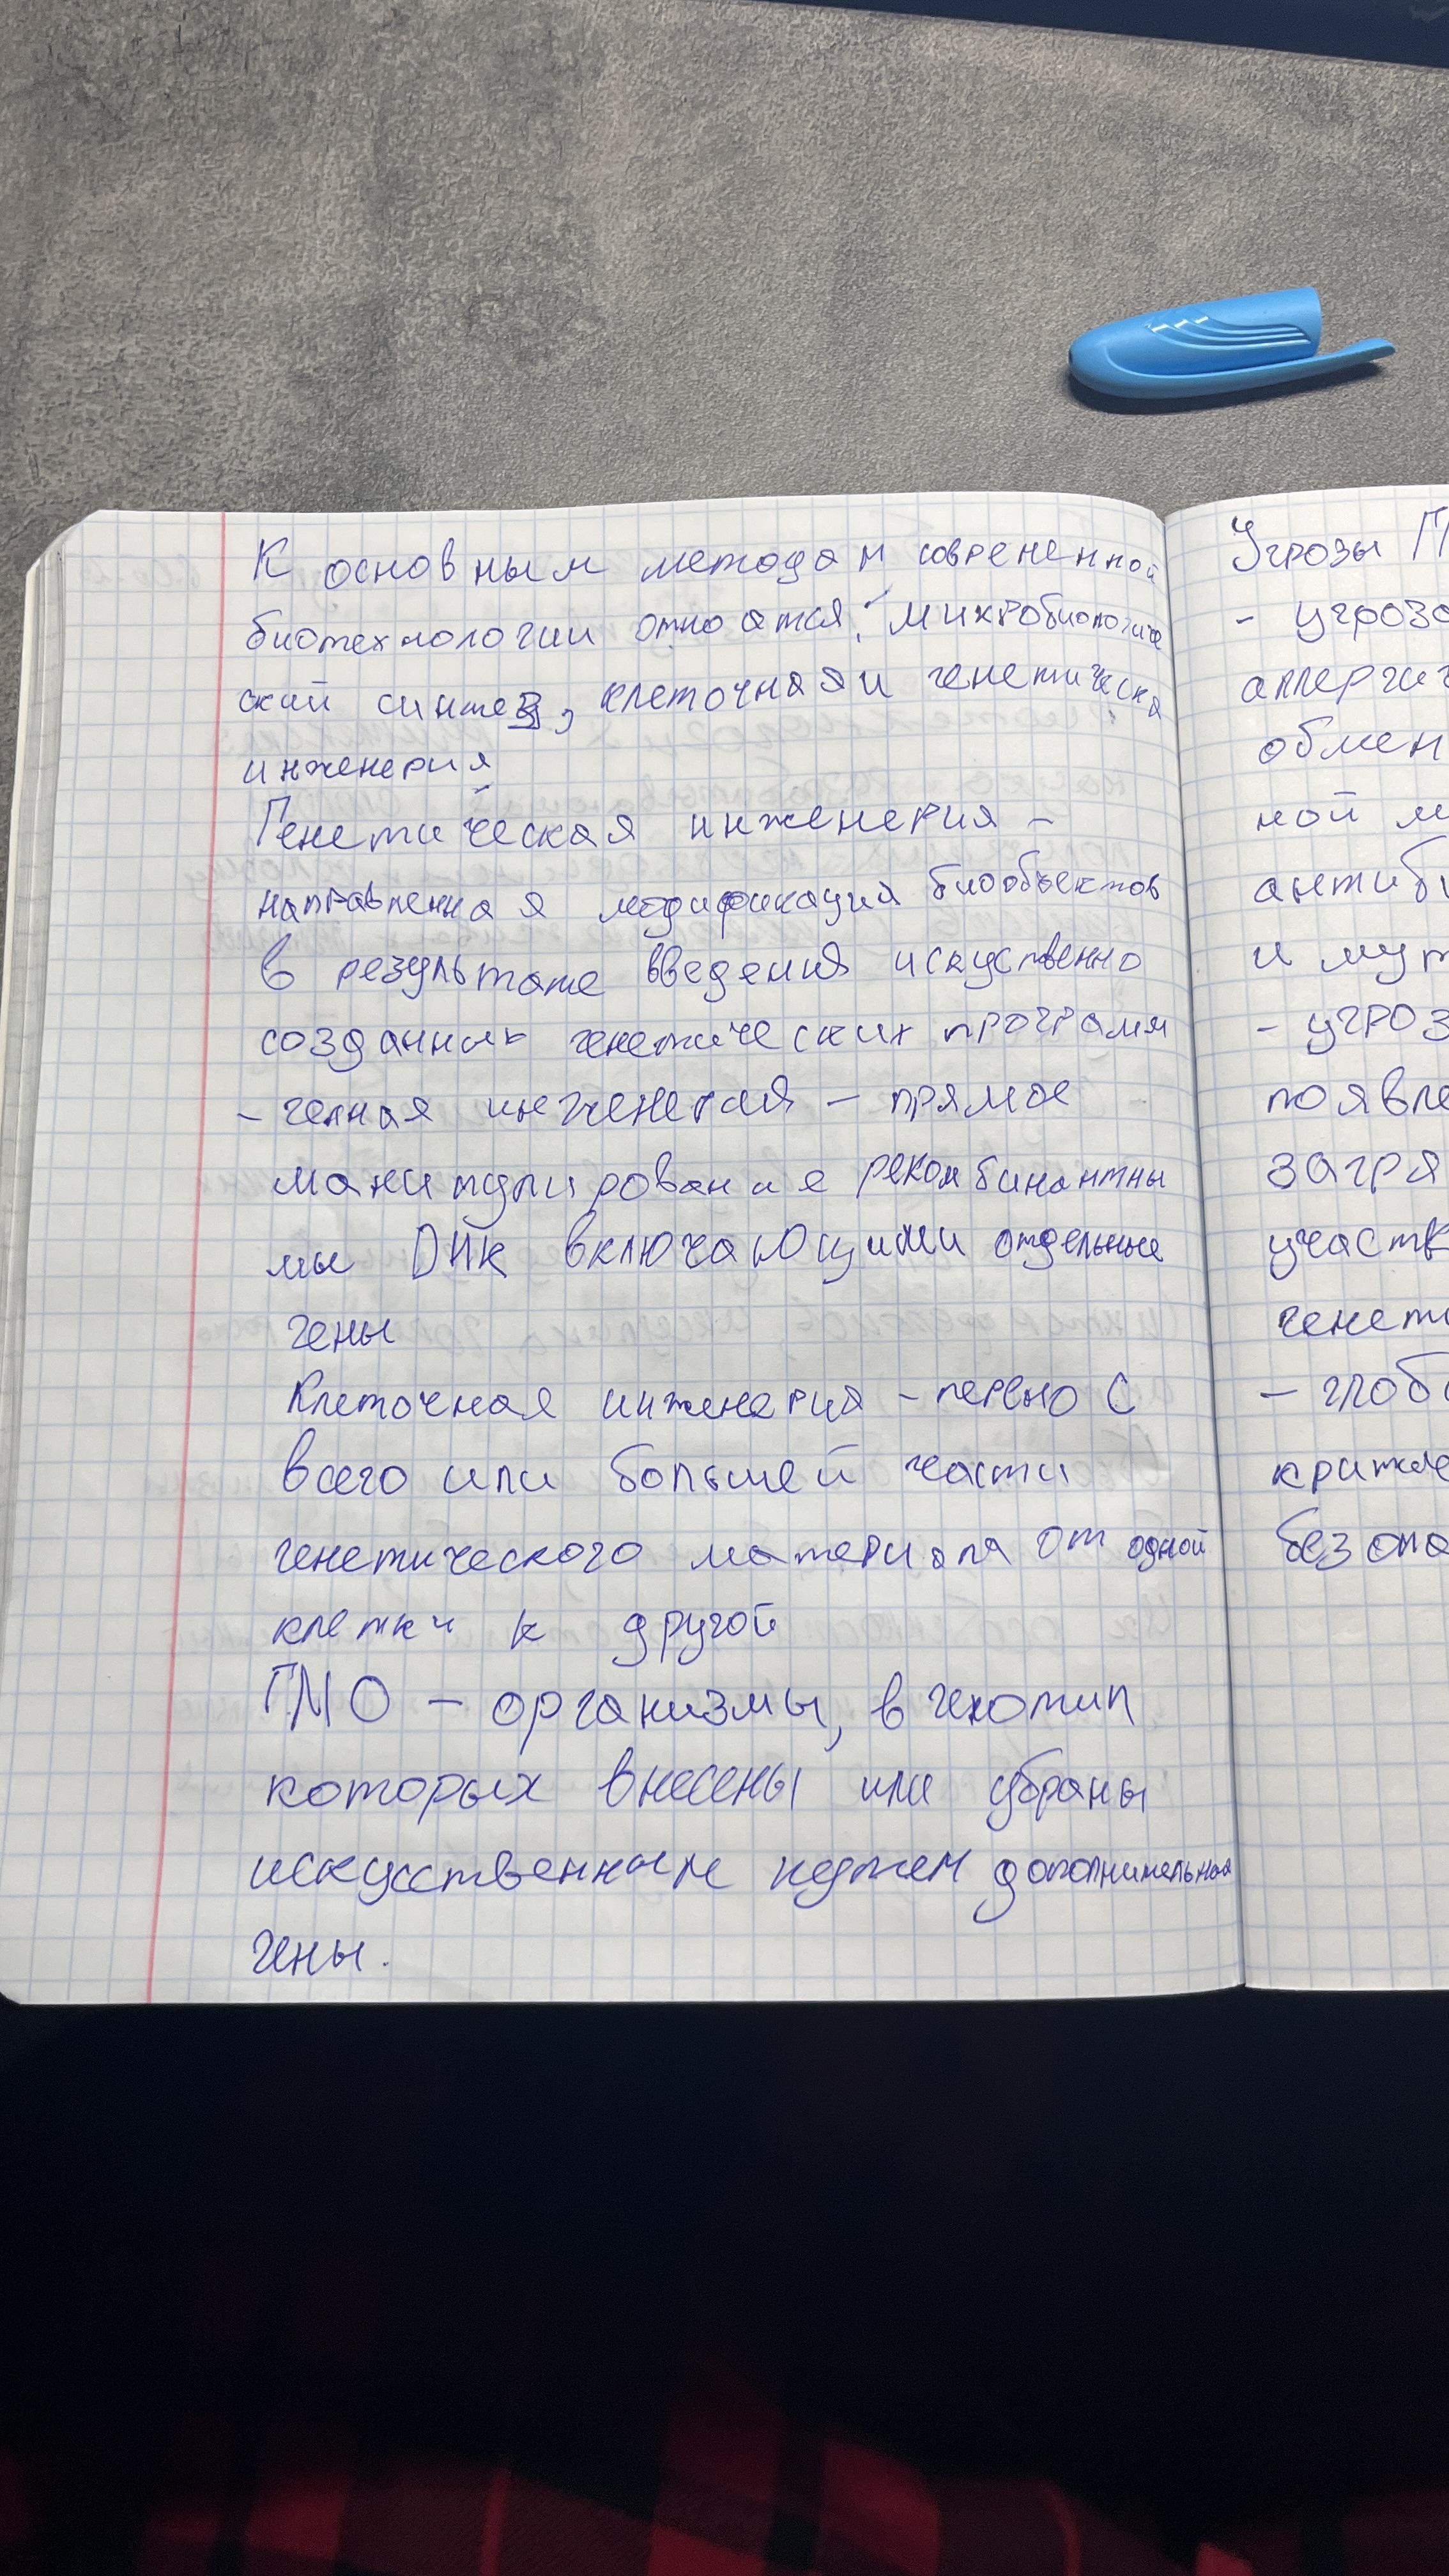 К основным методам современной
биотехнологии относятся: микробиологиче
ский синтез, клеточная и генетическа
инженерия
Генетическая инженерия –
направленная модификация биообъектов
в результате введения искуственно
созданных генетических программ
– генная инженерия – прямое
манипулирование рекомбинантны
мы ДНК включающими отдельные
гены
Клеточная инженерия – перено С
всего или большей части
генетического материала от одной
клетки к другой
ГМО – организмы, в генотип
которых внесены или убраны
искусственным путем дополнительная
гены.
Угрозы Г
– угроз
аллерги
обмен
ной м
антиб
и мут
– угроз
появле
загря
участк
генет
– глоб
крит
безопа